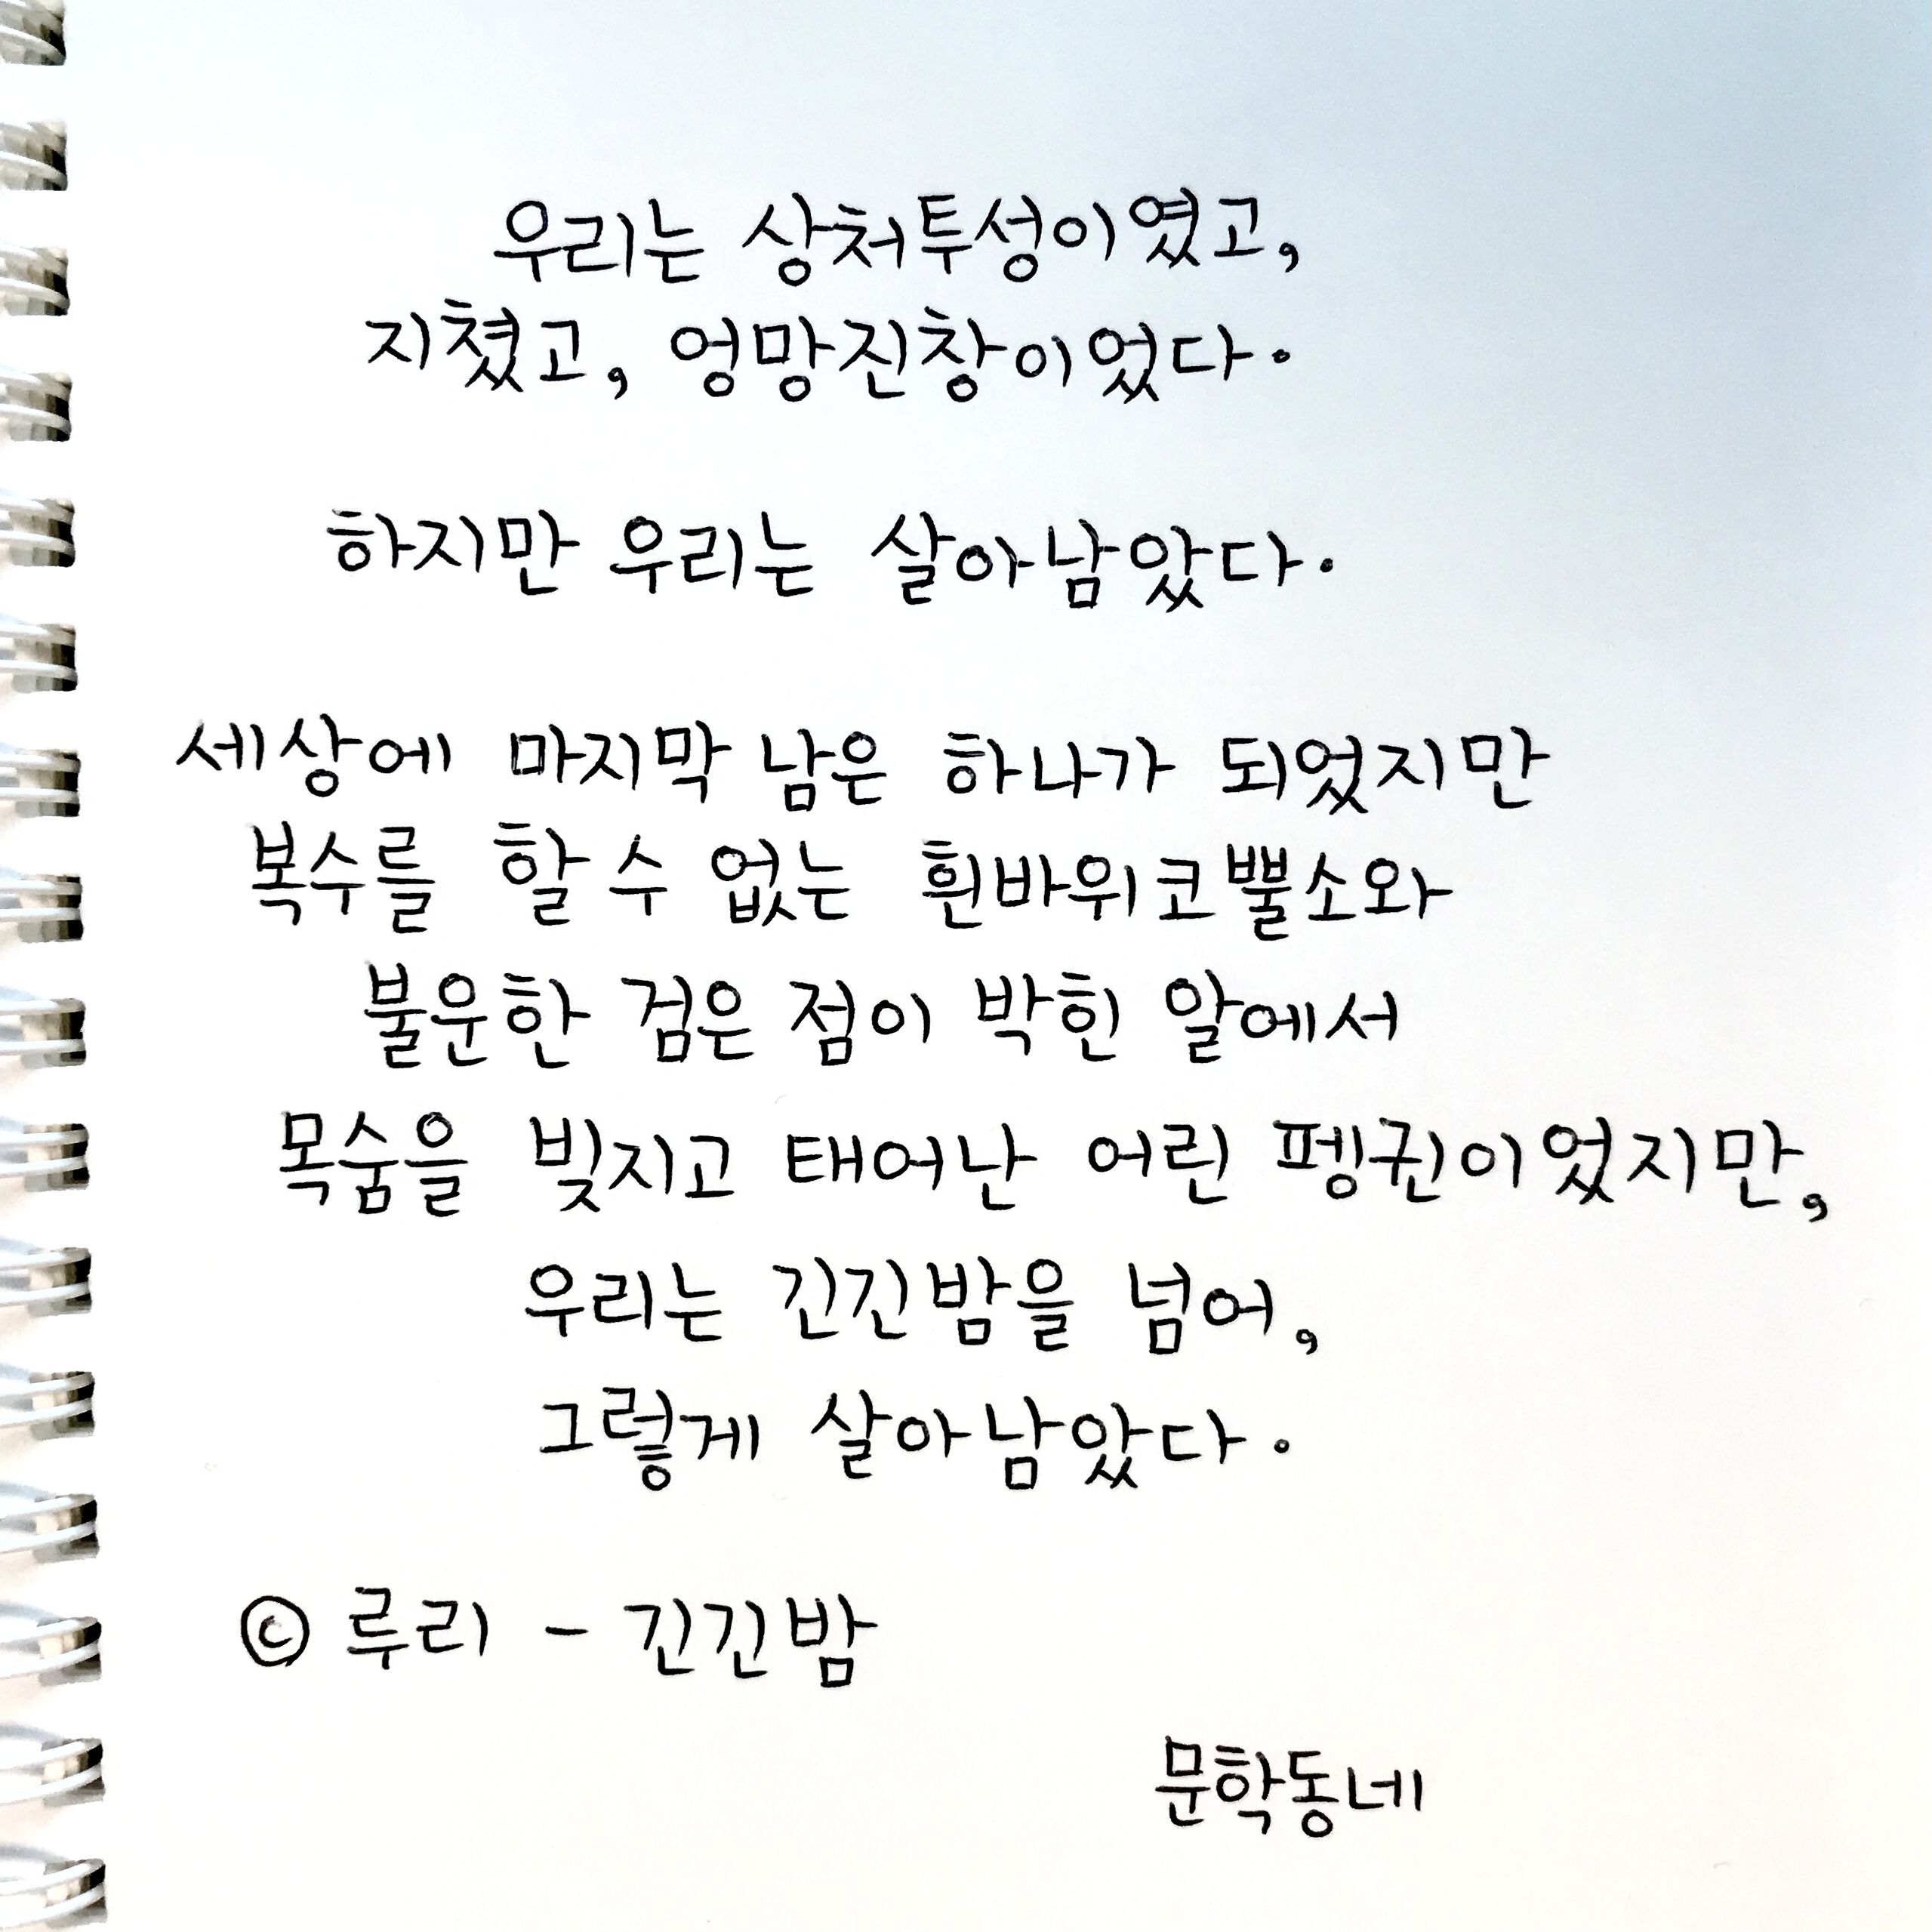 우리는 상처투성이였고,
지쳤고, 엉망진창이었다.
하지만 우리는 살아남았다.
세상에 마지막 남은 하나가 되었지만
복수를 할 수 없는 흰바위코뿔소와
불운한 검은 점이 박힌 알에서
목숨을 빚지고 태어난 어린 펭귄이었지만,
우리는 긴긴밤을 넘어,
그렇게 살아남았다.
© 루리 - 긴긴밤
문학동네